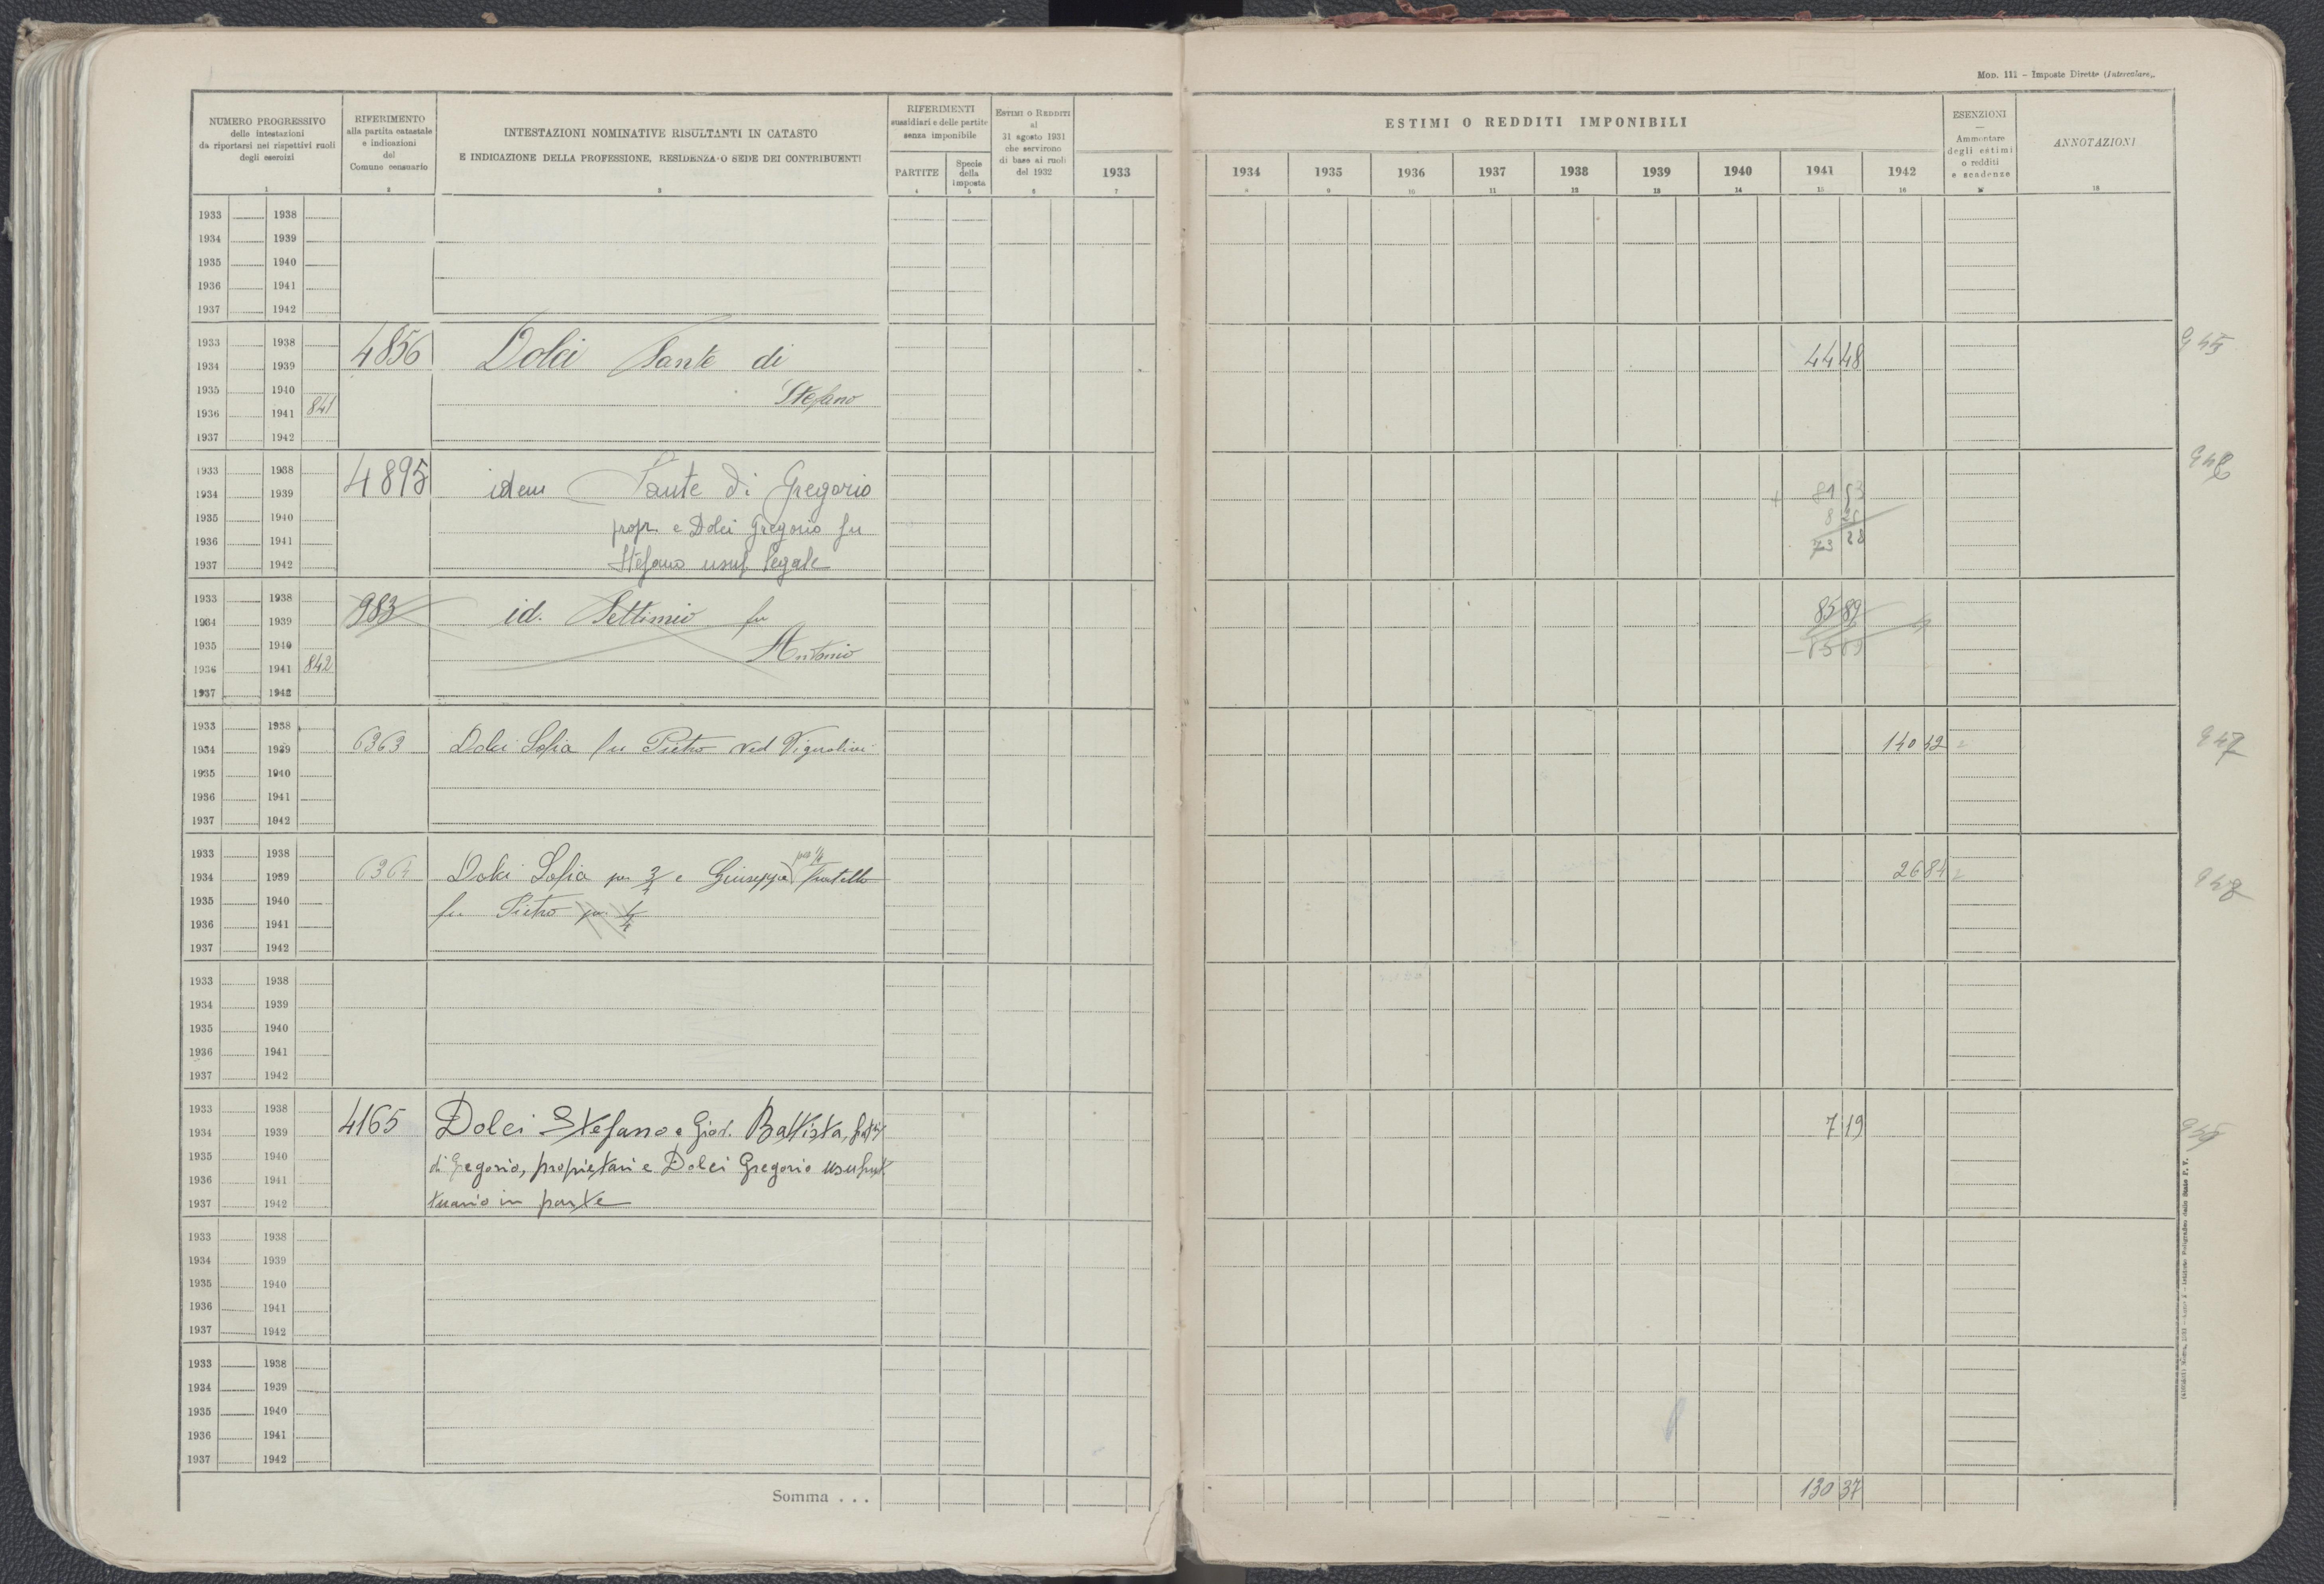 Mod. 111 - Imposte Dirette (Intercalare).
NUMERO PROGRESSIVO
delle intestazioni
da riportarsi nei rispettivi ruoli
degli esercizi
1
RIFERIMENTO
alla partita catastale
e indicazioni
del
Comune censuario
2
INTESTAZIONI NOMINATIVE RISULTANTI IN CATASTO
E INDICAZIONE DELLA PROFESSIONE, RESIDENZA O SEDE DEI CONTRIBUENTI
3
RIFERIMENTI
sussidiari e delle partite
senza imponibile
PARTITE
4
Specie
della
imposta
5
ESTIMI O REDDITI
al
31 agosto 1931
che servirono
di base ai ruoli
del 1932
6
ESTIMI O REDDITI IMPONIBILI
1933 1934 1935 1936 1937 1938 1939 1940 1941 1942
7 8 9 10 11 12 13 14 15 16
ESENZIONI
—
Ammontare
degli estimi
o redditi
e scadenze
17
ANNOTAZIONI
18
1933 1938
1934 1939
1935 1940
1936 1941
1937 1942
1933 1938
4856 Dolci Sante di 44 48
1934 1939
1935 1940
Stefano
1936 1941 841
1937 1942
1933 1938
4895 idem Sante di Gregorio
1934 1939
1935 1940
propr. e Dolci Gregorio fu
1936 1941
1937 1942
Stefano usuf. legale
73 28
1933 1938
983 id. Settimio fu 85 89
1934 1939
1935 1940
Antonio
1936 1941 842
1937 1942
1933 1938
1934 1939
6363 Dolci Sofia fu Pietro ved 140 42
1935 1940
1936 1941
1937 1942
1933 1938
per 1/4
1934 1939
6364 Dolci Sofia per 3/4 e Giuseppe fratello 26 84
1935 1940
fu Pietro per 1/4
1936 1941
1937 1942
1933 1938
1934 1939
1935 1940
1936 1941
1937 1942
1933 1938
4165 Dolci Stefano e Giov. Battista, 7 19
1934 1939
1935 1940
di Gregorio, proprietari e Dolci Gregorio usufrut
1936 1941
1937 1942
tuario in parte
1933 1938
1934 1939
1935 1940
1936 1941
1937 1942
1933 1938
1934 1939
1935 1940
1936 1941
1937 1942
Somma . . . 130 37